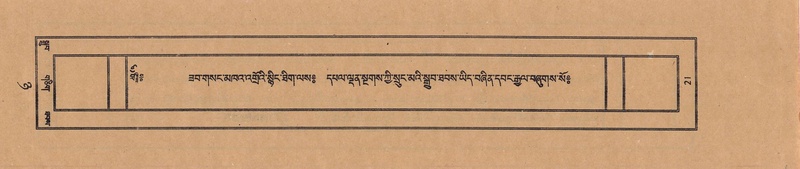 ༄༅༔ ཟབ་གསང་མཁའ་འགྲོའི་སྙིང་ཐིག་ལས༔ དཔལ་ལྡན་སྔགས་ཀྱི་སྲུང་མའི་སྒྲུབ་ཐབས་ཡིད་བཞིན་དབང་རྒྱལ་བཞུགས་སོ༔
གཅིག
21